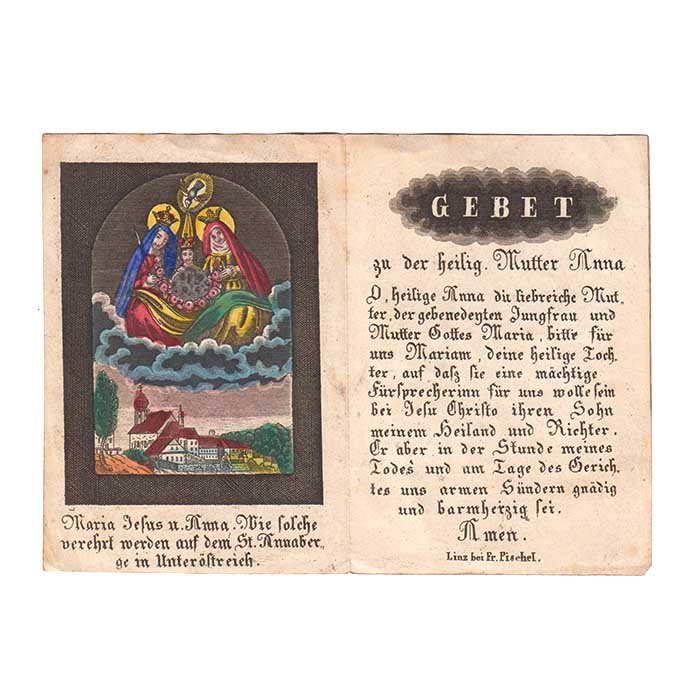 Maria Jesus u. Anna. Wie solche
verehrt werden auf dem St. Annaber,
ge in Unteröstreich.
GEBET
zu der heilig. Mutter Anna
O, heilige Anna dü liebreiche Mut,
ter, der gebenedeyten Jungfrau und
Mutter Gottes Maria, bitte für
uns Mariam, deine heilige Toch,
ter, auf daß sie eine mächtige
Fürsprecherinn für uns wolle sein
bei Jesu Christo ihren Sohn
meinem Heiland und Richter.
Er aber in der Stunde meines
Todes und am Tage des Gerich,
tes uns armen Sündern gnädig
und barmherzig sei.
Amen.
Linz bei Fr. Pischel.